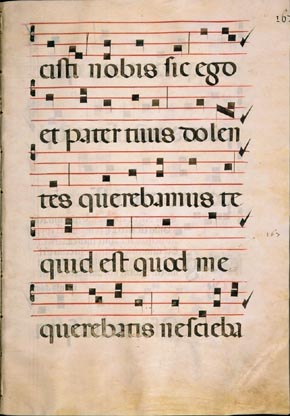 cisti nobis sic ego
et pater tuus dolen
tes querebamus te
quid est quod me
querebatis nescieba